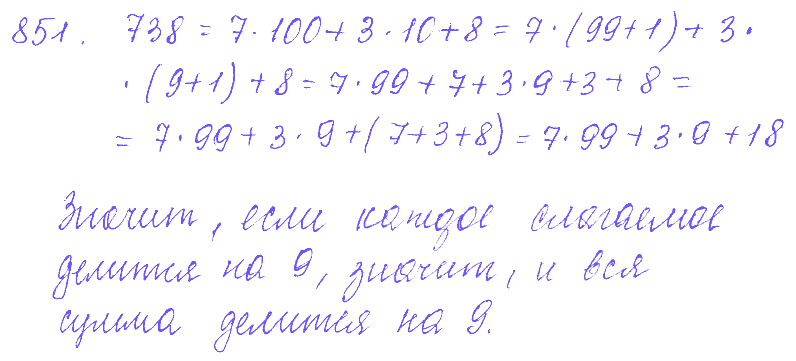 851. 738 = 7 · 100 + 3 · 10 + 8 = 7 · (99 + 1) + 3 ·
· (9 + 1) + 8 = 7 · 99 + 7 + 3 · 9 + 3 + 8 =
= 7 · 99 + 3 · 9 + (7 + 3 + 8) = 7 · 99 + 3 · 9 + 18
Значит, если каждое слагаемое
делится на 9, значит, и вся
сумма делится на 9.